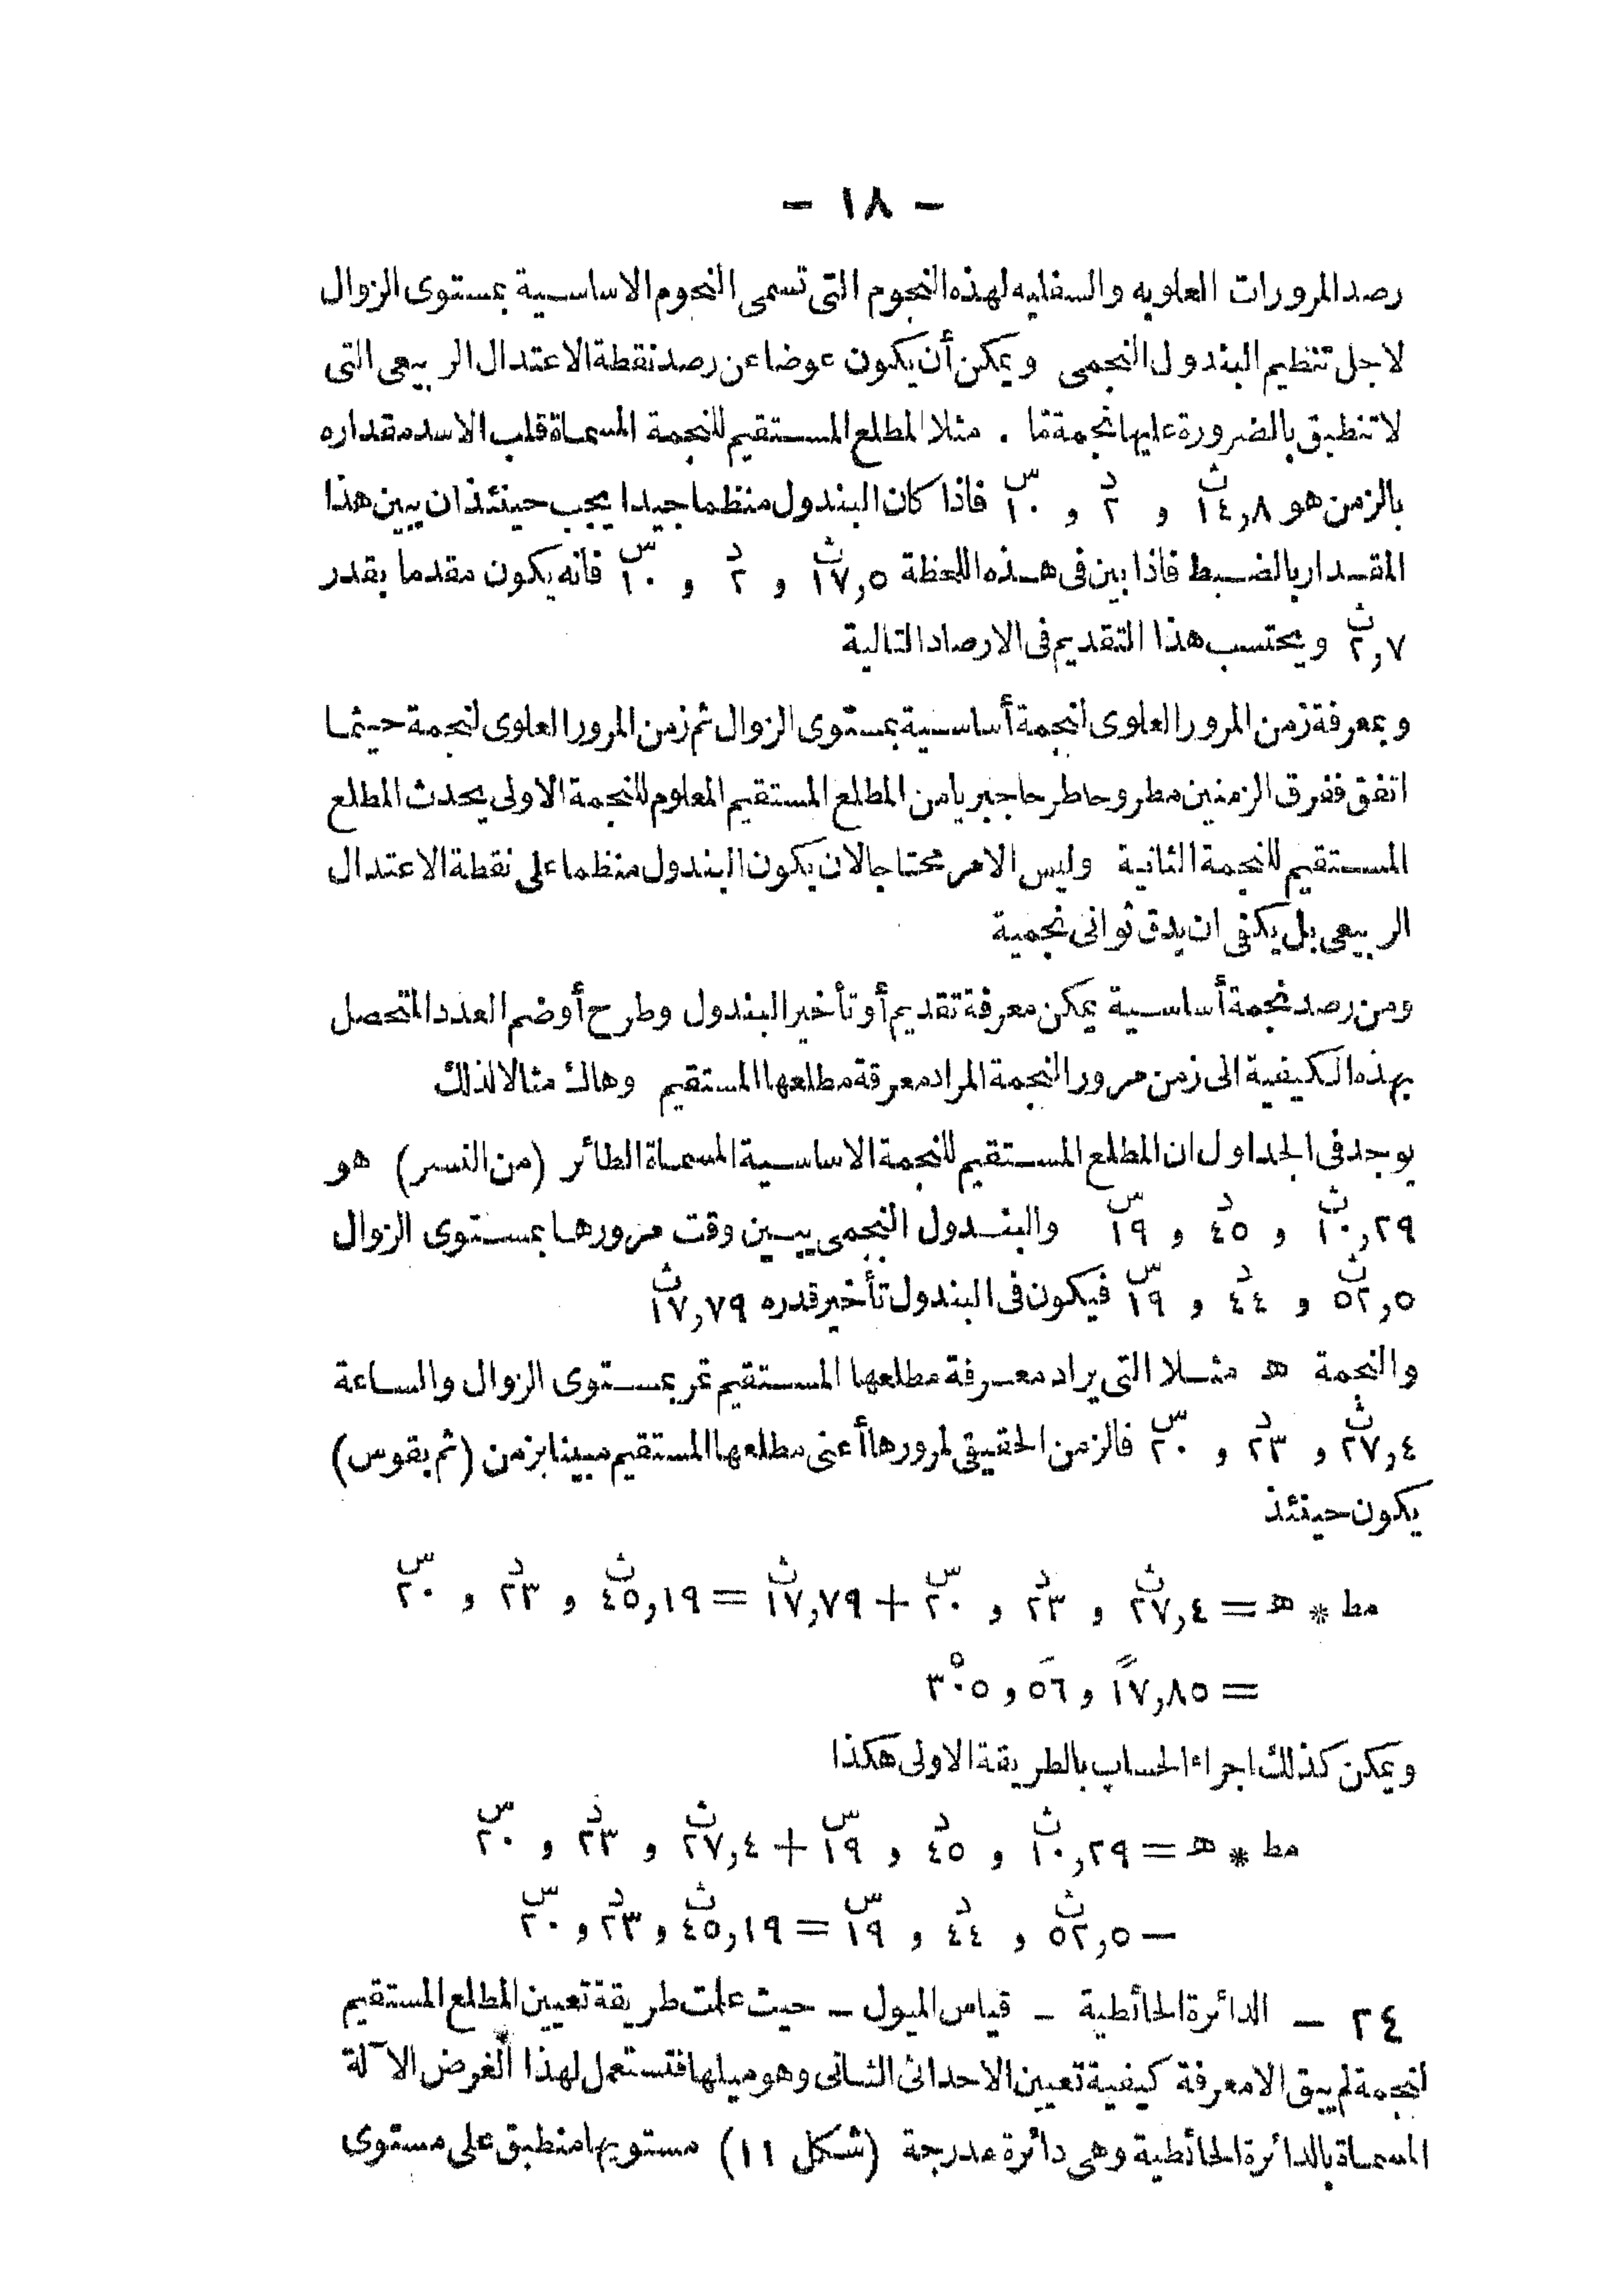 - ١٨ -
رصد المرورات العلويه والسفليه لهذه النجوم التى تسمى النجوم الاساسية بمستوى الزوال
لاجل تنظيم البندول النجمى ويمكن أن يكون عوضا عن رصد نقطة الاعتدال الربيعى التى
لا تنطبق بالضرورة عليها نجمة ما . مثلا المطلع المستقيم للنجمة المسماة قلب الاسد مقداره
بالزمن هو ١٤,٨ث و ٢د و ١٠س فاذا كان البندول منظما جيدا يجب حينئذ ان يبين هذا
المقدار بالضبط فاذا بين فى هذه اللحظة ١٧,٥ث و ٢د و ١٠س فانه يكون مقدما بقدر
٢,٧ث ويحتسب هذا التقديم فى الارصاد التالية
وبمعرفة زمن المرور العلوى لنجمة أساسية بمستوى الزوال ثم زمن المرور العلوى لنجمة حيثما
اتفق ففرق الزمنين مطروحا طرحا جبريا من المطلع المستقيم المعلوم للنجمة الاولى يحدث المطلع
المستقيم للنجمة الثانية وليس الامر محتاجا لان يكون البندول منظما على نقطة الاعتدال
الربيعى بل يكفى ان يدق ثوانى نجمية
ومن رصد نجمة أساسية يمكن معرفة تقديم أو تأخير البندول وطرح أو ضم العدد المتحصل
بهذه الكيفية الى زمن مرور النجمة المراد معرفة مطلعها المستقيم وهاك مثالا لذلك
يوجد فى الجداول ان المطلع المستقيم للنجمة الاساسية المسماة الطائر (من النسر) هو
١٠,٢٩ث و ٤٥د و ١٩س والبندول النجمى يبين وقت مرورها بمستوى الزوال
٥٢,٥ث و ٤٤د و ١٩س فيكون فى البندول تأخير قدره ١٧,٧٩ث
والنجمة ه مثلا التى يراد معرفة مطلعها المستقيم تمر بمستوى الزوال والساعة
٢٧,٤ث و ٢٣د و ٢٠س فالزمن الحقيقى لمرورها أعنى مطلعها المستقيم مبينا بزمن (ثم بقوس)
يكون حينئذ
مط * ه = ٢٧,٤ث و ٢٣د و ٢٠س + ١٧,٧٩ث = ٤٥,١٩ث و ٢٣د و ٢٠س
= ١٧,٨٥″ و ٥٦′ و ٣٠٥°
ويمكن كذلك اجراء الحساب بالطريقة الاولى هكذا
مط * ه = ١٠,٢٩ث و ٤٥د و ١٩س + ٢٧,٤ث و ٢٣د و ٢٠س
— ٥٢,٥ث و ٤٤د و ١٩س = ٤٥,١٩ث و ٢٣د و ٢٠س
٢٤ — الدائرة الحائطية - قياس الميول - حيث علمت طريقة تعيين المطلع المستقيم
لنجمة لم يبق الا معرفة كيفية تعيين الاحداثى الثانى وهو ميلها فتستعمل لهذا الغرض الآلة
المسماة بالدائرة الحائطية وهى دائرة مدرجة (شكل ١١) مستويها منطبق على مستوى